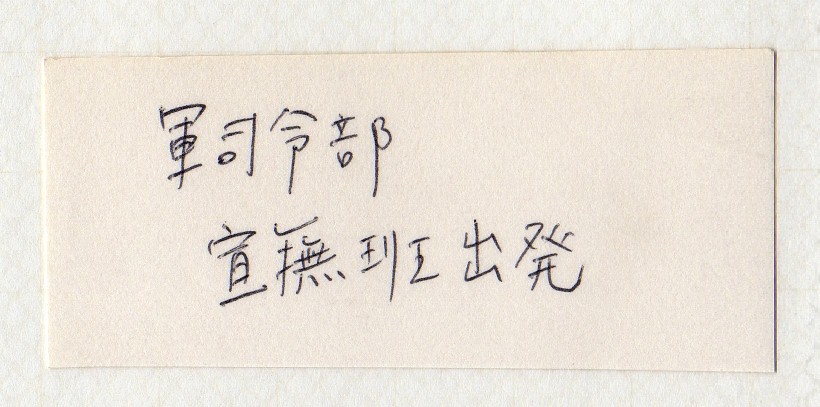 軍司令部
宣撫班出発